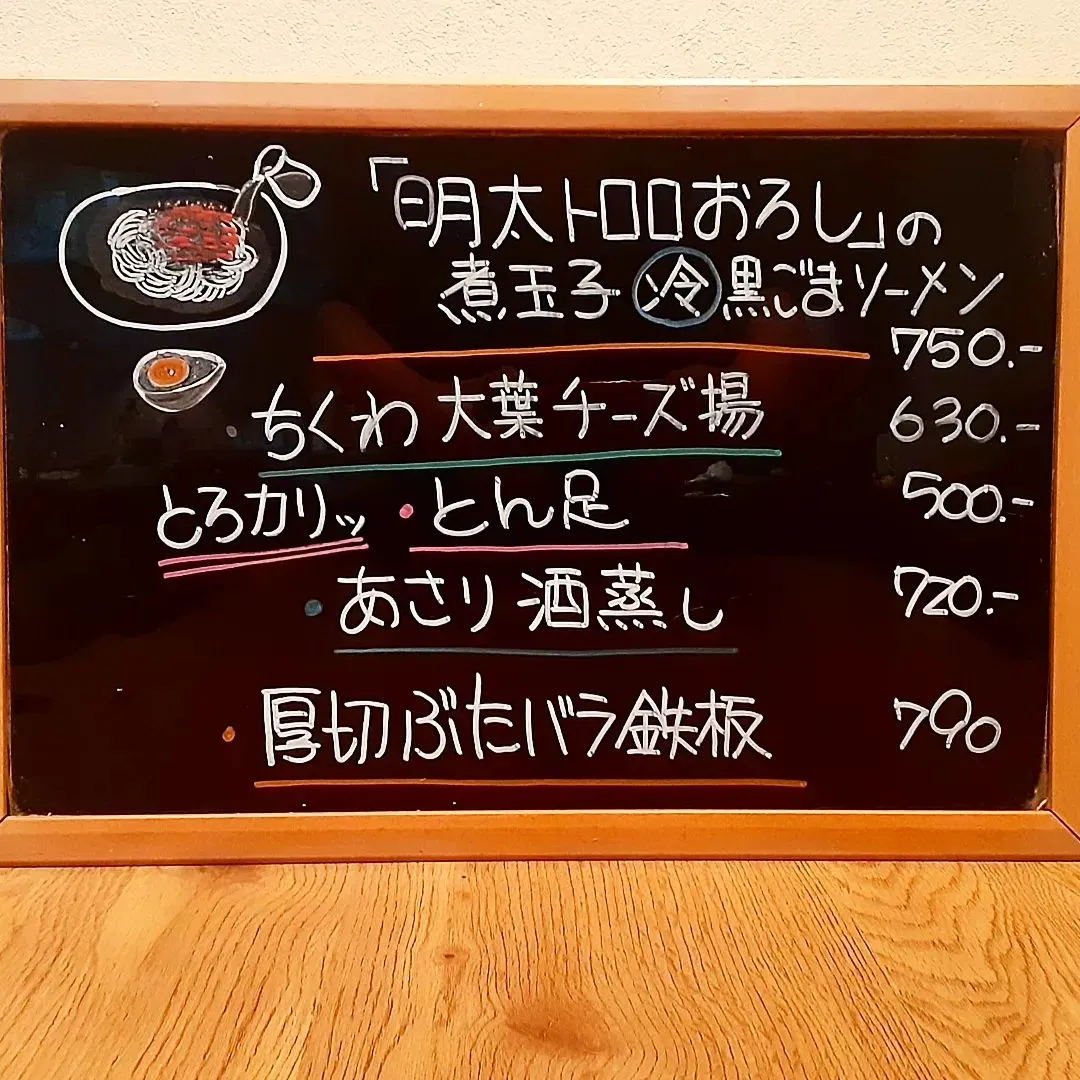 「明太トロロおろし」の
煮玉子 冷 黒ごまソーメン
750.-
・ちくわ 大葉チーズ揚 630.-
とろカリッ・とん足 500.-
・あさり 酒蒸し 720.-
・厚切ぶたバラ鉄板 790